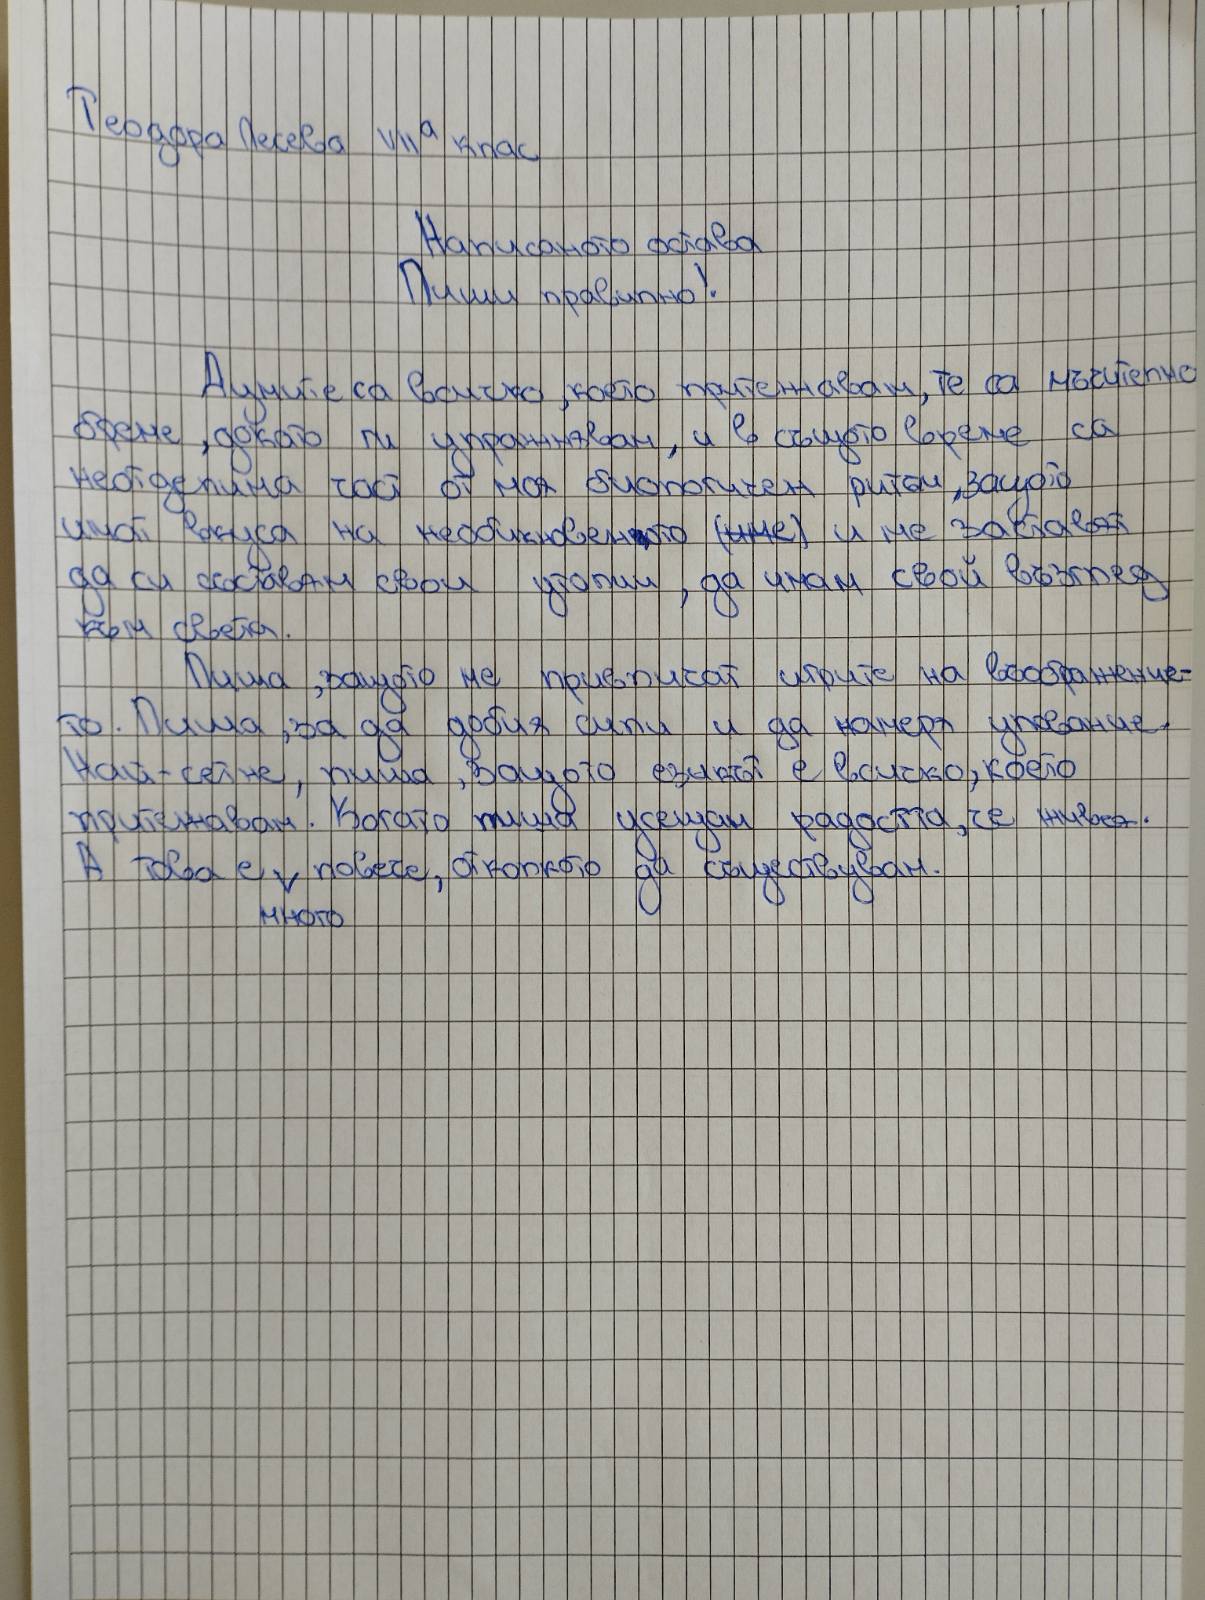 Теодора Лесева VIIа клас
Написаното остава
Пиши правилно!
Думите са всичко, което притежавам, те са мъчително
бреме, докато ги упражнявам, и в същото време са
неотделима част от моя биологичен ритъм, защото
имат вкуса на необикновеното (ние) и ме заставят
да си съставям свои утопии, да имам свой възглед
към света.
Пиша, защото ме привличат игрите на въображение-
то. Пиша, за да добия сили и да намеря упование.
Най-сетне, пиша, защото езикът е всичко, което
притежавам. Когато пиша усещам радостта, че живея.
А това е много повече, отколкото да съществувам.